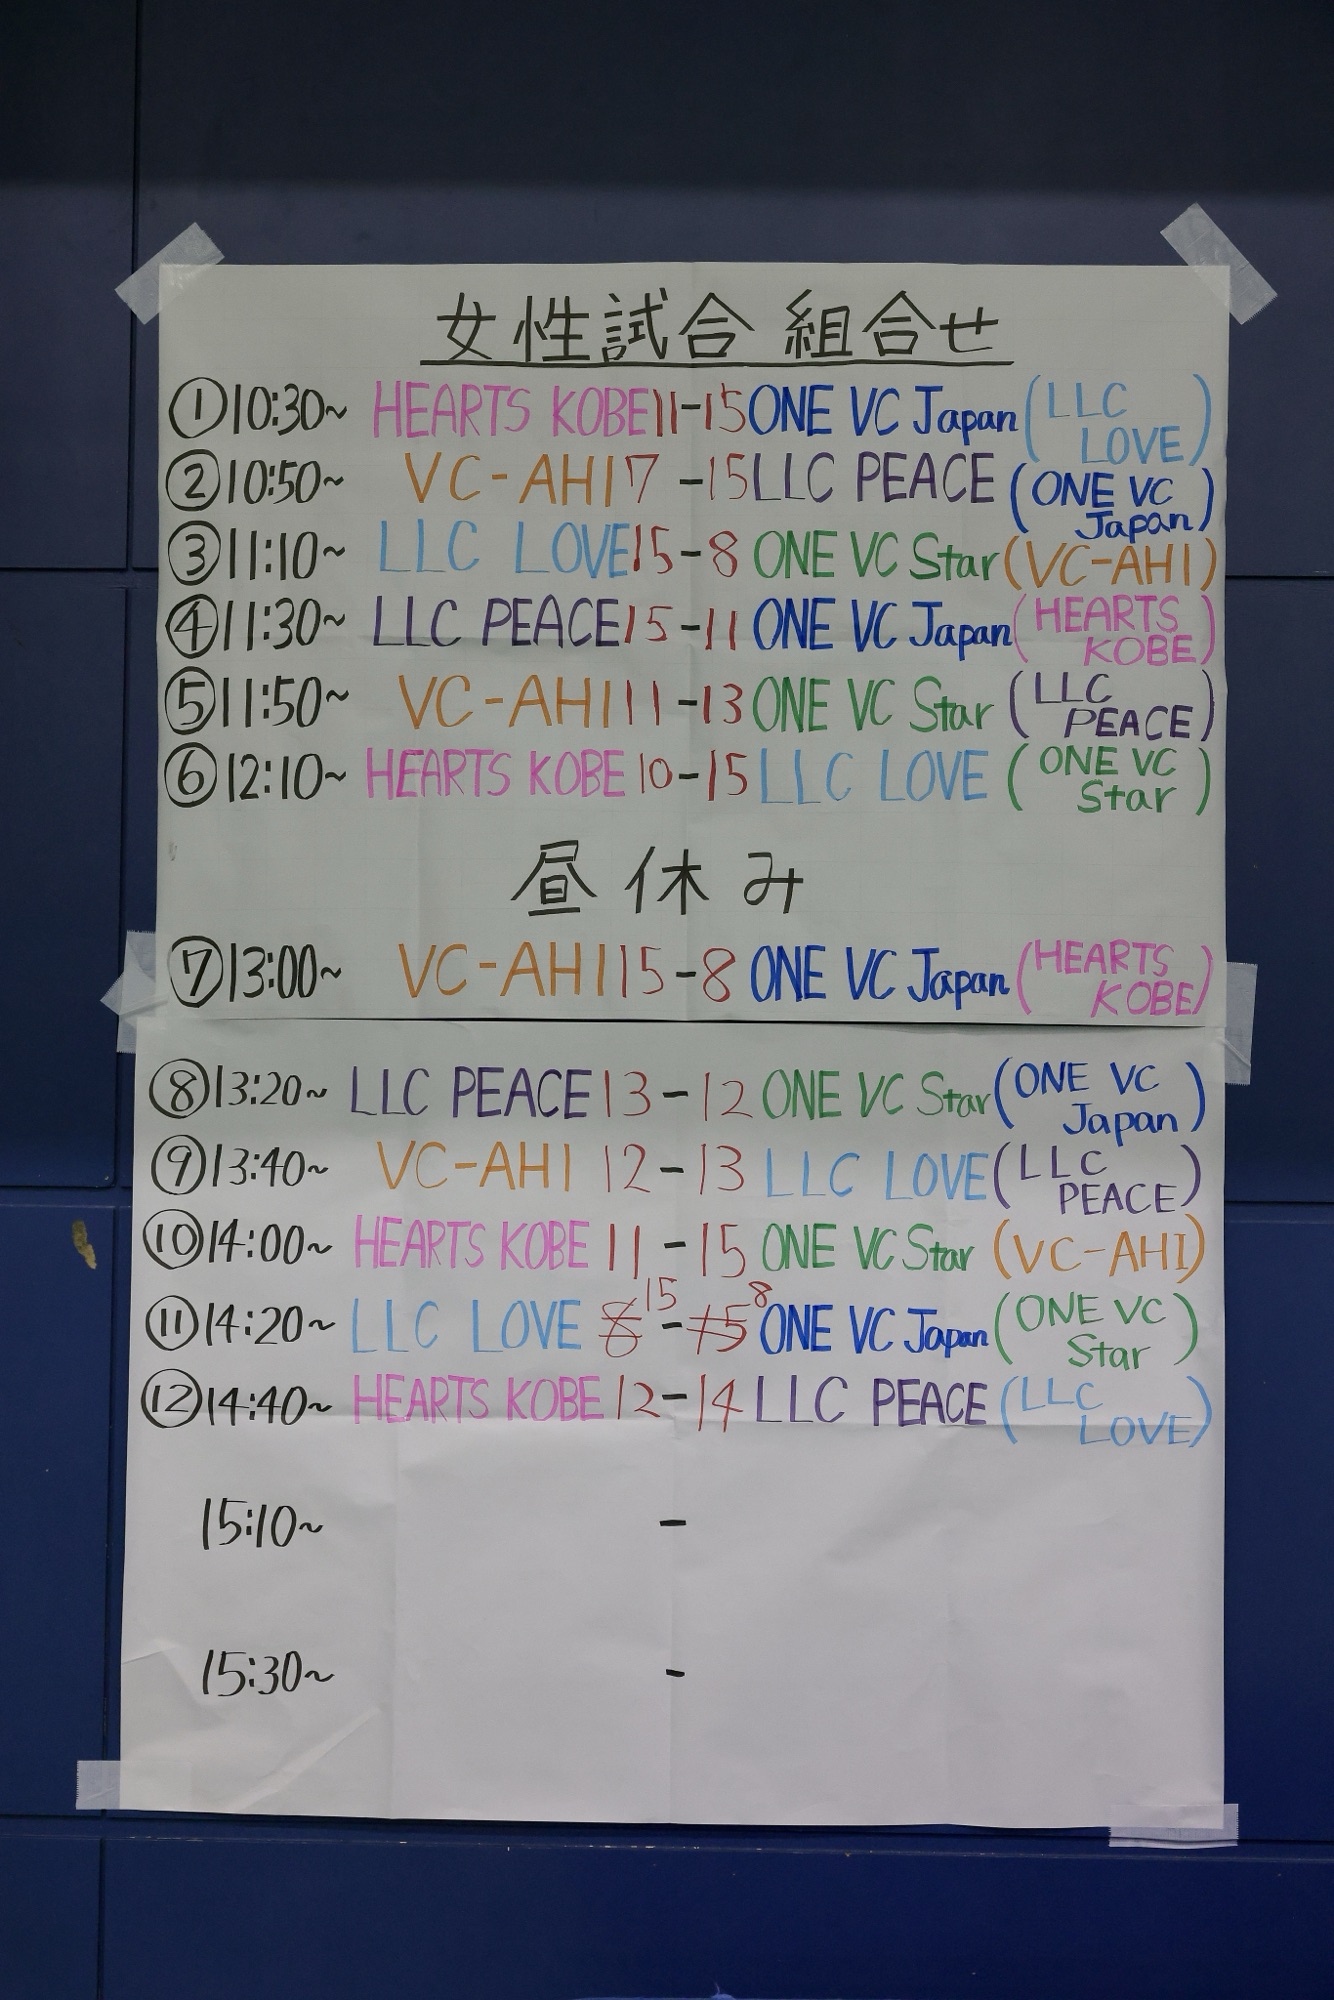 女性試合 組合せ
①10:30~ HEARTS KOBE 11-15 ONE VC Japan (LLC LOVE)
②10:50~ VC-AHI 7-15 LLC PEACE (ONE VC Japan)
③11:10~ LLC LOVE 15-8 ONE VC Star (VC-AHI)
④11:30~ LLC PEACE 15-11 ONE VC Japan (HEARTS KOBE)
⑤11:50~ VC-AHI 11-13 ONE VC Star (LLC PEACE)
⑥12:10~ HEARTS KOBE 10-15 LLC LOVE (ONE VC Star)
昼休み
⑦13:00~ VC-AHI 15-8 ONE VC Japan (HEARTS KOBE)
⑧13:20~ LLC PEACE 13-12 ONE VC Star (ONE VC Japan)
⑨13:40~ VC-AHI 12-13 LLC LOVE (LLC PEACE)
⑩14:00~ HEARTS KOBE 11-15 ONE VC Star (VC-AHI)
⑪14:20~ LLC LOVE 8 15-15 8 ONE VC Japan (ONE VC Star)
⑫14:40~ HEARTS KOBE 12-14 LLC PEACE (LLC LOVE)
15:10~ -
15:30~ -